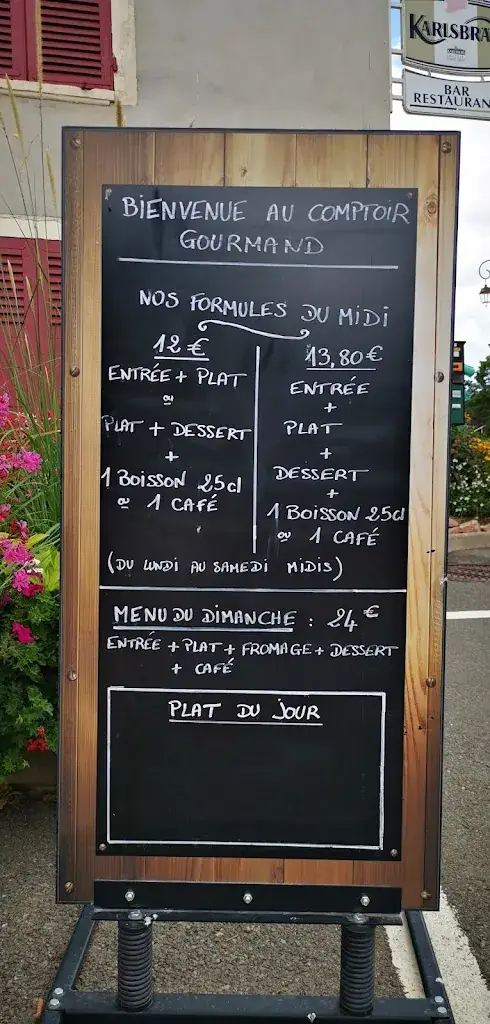 KARLSBRA
BAR
RESTAURAN
BIENVENUE AU COMPTOIR
GOURMAND
NOS FORMULES DU MIDI
12 €
ENTRÉE + PLAT
ou
PLAT + DESSERT
+
1 BOISSON 25cl
ou 1 CAFÉ
13,80 €
ENTRÉE
+
PLAT
+
DESSERT
+
1 BOISSON 25cl
ou 1 CAFÉ
(DU LUNDI AU SAMEDI MIDIS)
MENU DU DIMANCHE : 24 €
ENTRÉE + PLAT + FROMAGE + DESSERT
+ CAFÉ
PLAT DU JOUR